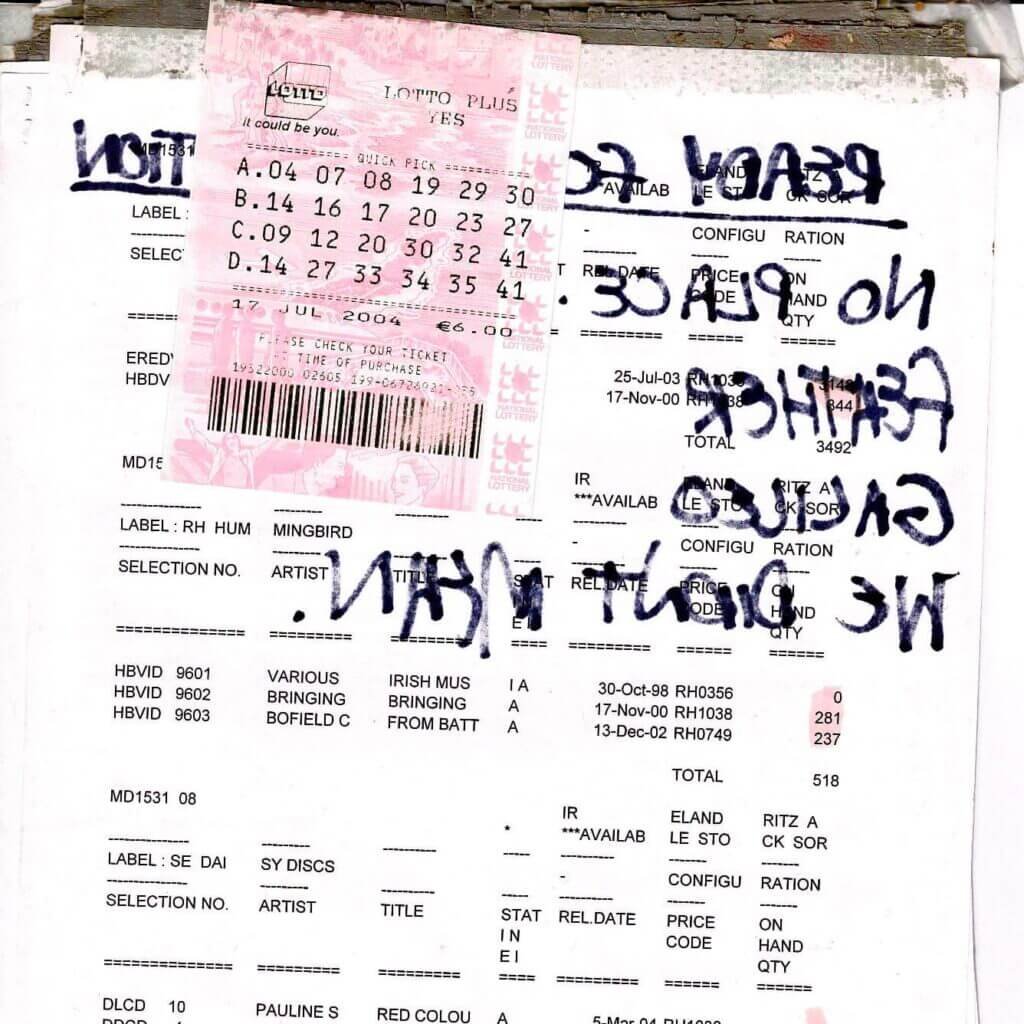 LOTTO
It could be you.
LOTTO PLUS
YES
QUICK PICK
A.04 07 08 19 29 30
B.14 16 17 20 23 27
C.09 12 20 30 32 41
D.14 27 33 34 35 41
17 JUL 2004 €6.00
PLEASE CHECK YOUR TICKET
TIME OF PURCHASE
NATIONAL LOTTERY
READY
NO PLACE.
FEATHER
GALILEO
WE DIDN'T
MD1531
***AVAILAB LE STO CK SOR
LABEL :
- CONFIGU RATION
SELEC REL.DATE PRICE ON
CODE HAND
QTY
25-Jul-03 3148
HBDV 17-Nov-00 344
TOTAL 3492
IR ELAND RITZ A
***AVAILAB LE STO CK SOR
LABEL : RH HUM MINGBIRD
- CONFIGU RATION
SELECTION NO. ARTIST TITLE STAT REL.DATE PRICE ON
CODE HAND
E I QTY
HBVID 9601 VARIOUS IRISH MUS I A 30-Oct-98 RH0356 0
HBVID 9602 BRINGING BRINGING A 17-Nov-00 RH1038 281
HBVID 9603 BOFIELD C FROM BATT A 13-Dec-02 RH0749 237
TOTAL 518
MD1531 08 IR ELAND RITZ A
* ***AVAILAB LE STO CK SOR
LABEL : SE DAI SY DISCS
- CONFIGU RATION
SELECTION NO. ARTIST TITLE STAT REL.DATE PRICE ON
I N CODE HAND
E I QTY
DLCD 10 PAULINE S RED COLOU A 5-Mar-04